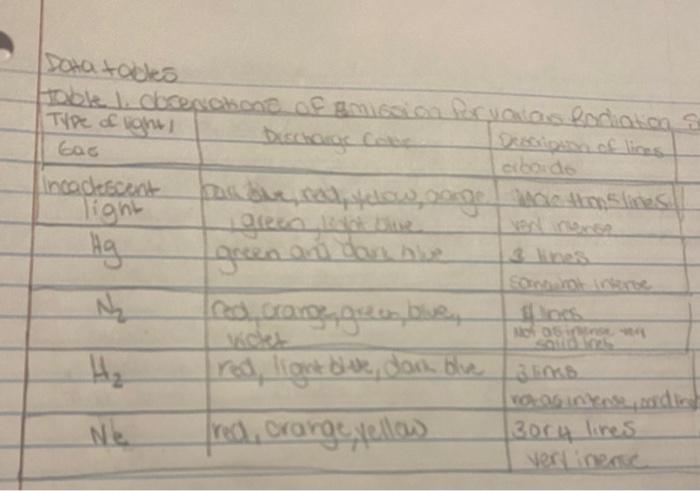 Data tables
Table 1. Observations of Emission for various Radiation S
Type of light/ Discharge Description of lines
Gas or bands
Incadescent dark blue, red, yellow, orange more than 5 lines
light green, light blue very inense
Hg green and dark blue 3 lines
somewhat intense
N2 red, orange, green, blue, 4 lines
violet Not as intense very
solid lines
H2 red, light blue, dark blue 3 lines
not as intense,
Ne red, orange, yellow 3 or 4 lines
very inense